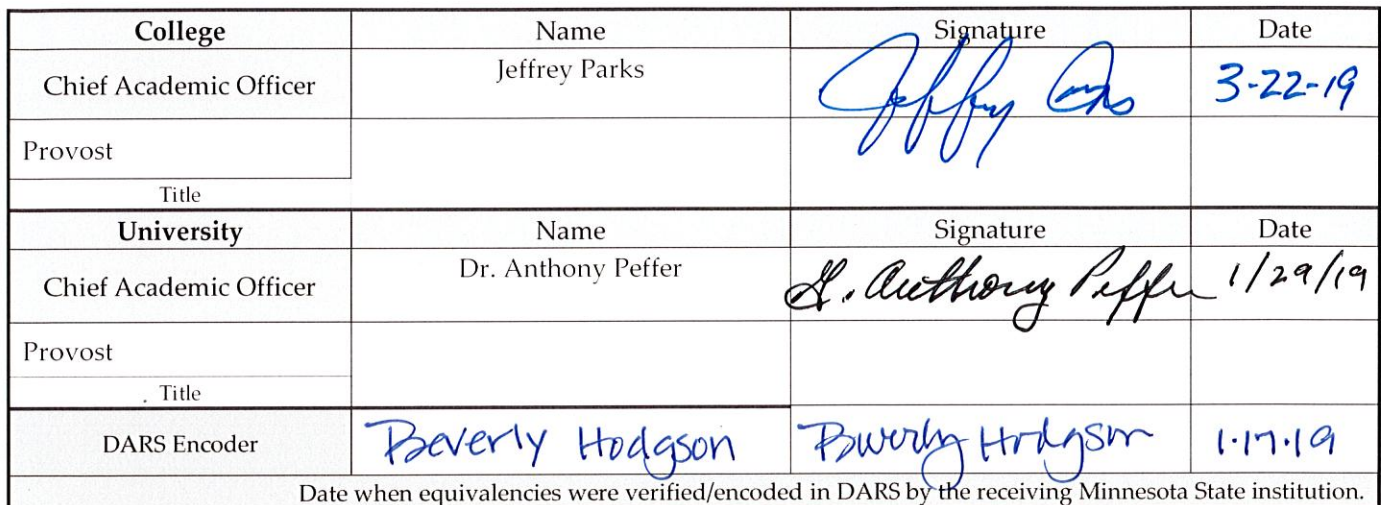 College Name Signature Date
Chief Academic Officer Jeffrey Parks Jeffrey Parks 3-22-19
Provost
Title
University Name Signature Date
Chief Academic Officer Dr. Anthony Peffer H. Anthony Peffer 1/29/19
Provost
. Title
DARS Encoder Beverly Hodgson Beverly Hodgson 1.17.19
Date when equivalencies were verified/encoded in DARS by the receiving Minnesota State institution.